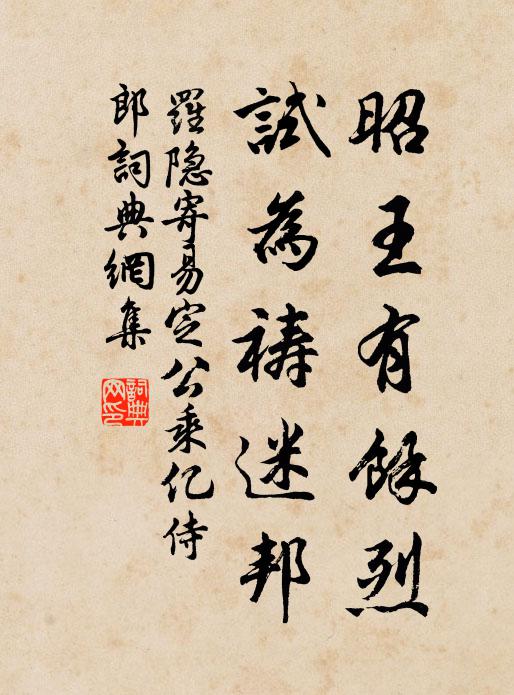 昭王有餘烈
試為禱迷邦
羅隐寄易定公乘亿侍
郎詞典網集
詞典
网印